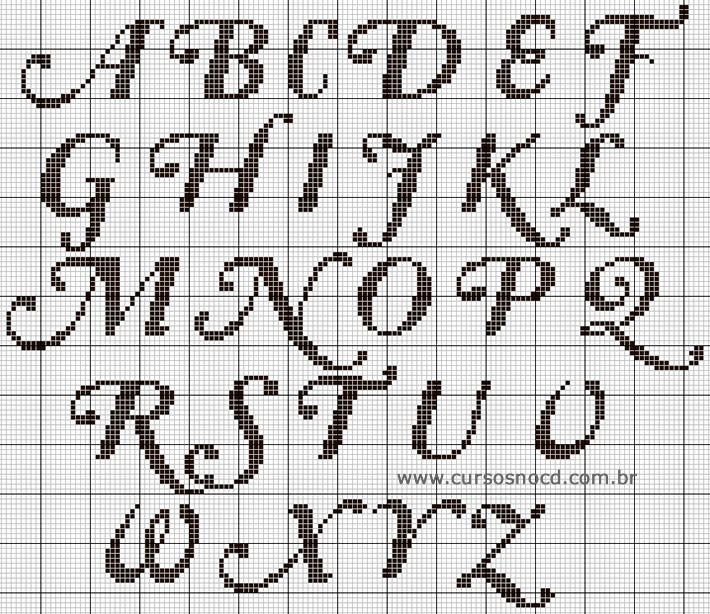 A B C D E F
G H I J K L
M N O P Q
R S T U V
www.cursosnocd.com.br
W X Y Z